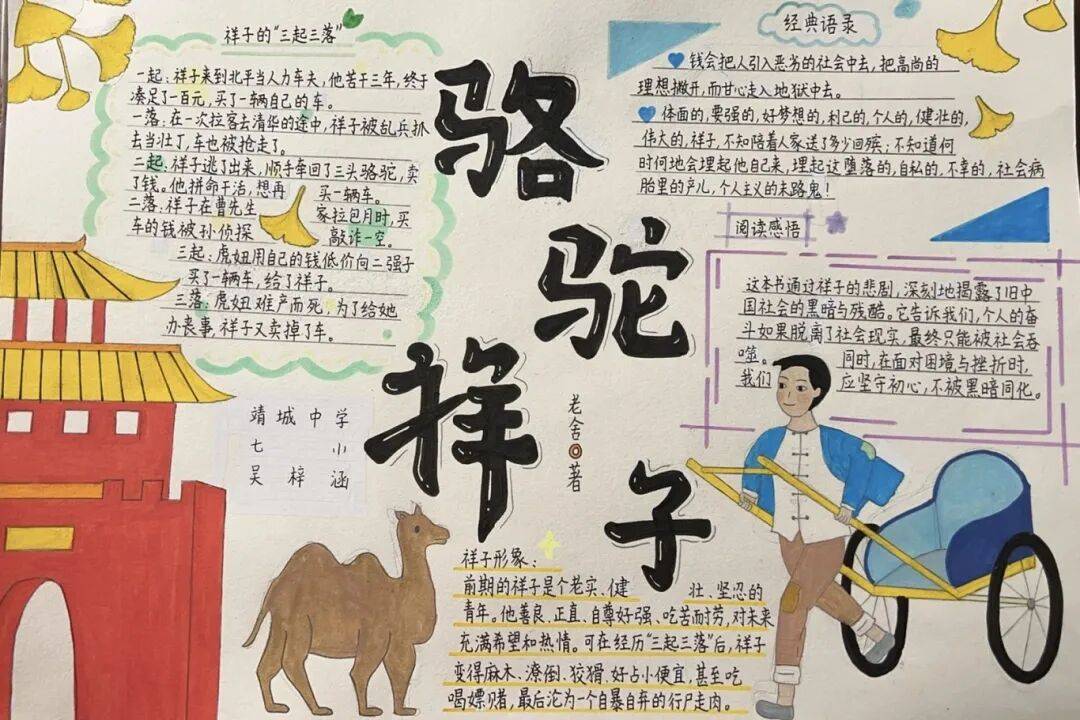 祥子的“三起三落”
一起:祥子来到北平当人力车夫,他苦干三年,终于
凑足了一百元,买了一辆自己的车。
一落:在一次拉客去清华的途中,祥子被乱兵抓
去当壮丁,车也被抢走了。
二起:祥子逃了出来,顺手牵回了三头骆驼,卖
了钱。他拼命干活,想再 买一辆车。
二落:祥子在曹先生 家拉包月时,买
车的钱被孙侦探 敲诈一空。
三起:虎妞用自己的钱低价向二强子
买了一辆车,给了祥子。
三落:虎妞难产而死,为了给她
办丧事,祥子又卖掉了车。
靖城中学
七 小
吴梓涵
骆
驼
祥
子
老舍◎著
经典语录
钱会把人引入恶劣的社会中去,把高尚的
理想撇开,而甘心走入地狱中去。
体面的,要强的,好梦想的,利己的,个人的,健壮的,
伟大的,祥子,不知陪着人家送了多少回殡;不知道何
时何地会埋起他自己来,埋起这堕落的,自私的,不幸的,社会病
胎里的产儿,个人主义的末路鬼!
阅读感悟
这本书通过祥子的悲剧,深刻地揭露了旧中
国社会的黑暗与残酷。它告诉我们,个人的奋
斗如果脱离了社会现实,最终只能被社会吞
噬。 同时,在面对困境与挫折时,
我们 应坚守初心,不被黑暗同化。
祥子形象:
前期的祥子是个老实、健 壮、坚忍的
青年。他善良、正直、自尊好强、吃苦耐劳,对未来
充满希望和热情。可在经历“三起三落”后,祥子
变得麻木、潦倒、狡猾、好占小便宜,甚至吃
喝嫖赌,最后沦为一个自暴自弃的行尸走肉。